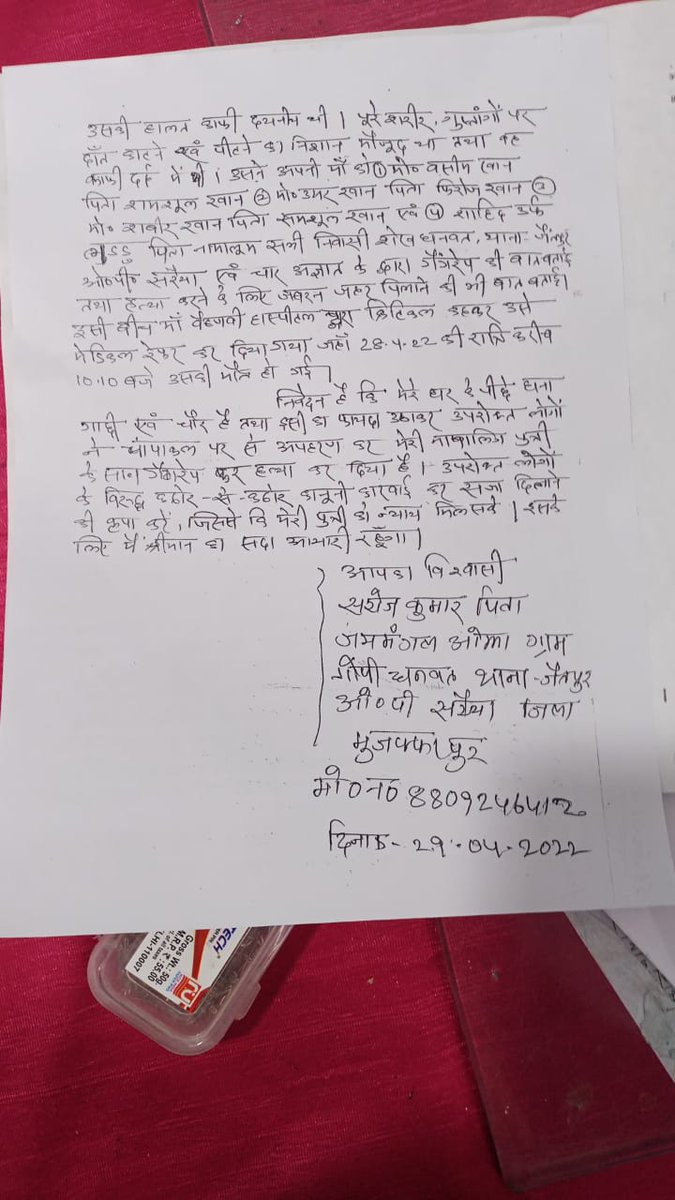 उसकी हालत काफी दयनीय थी। पूरे शरीर, गुप्तांगों पर
दाँत काटने एवं पीटने का निशान मौजूद था तथा वह
काफी दर्द में थी। उसने अपनी माँ को ① मो० वसीम खान
पिता शमशूल खान ② मो० उमर खान पिता फिरोज खान ③
मो० शाबीर खान पिता समशूल खान एवं ④ शाहिद उर्फ
पिता नामालूम सभी निवासी शेख धनवत, थाना- जैतपुर
ओ०पी० सरैया एवं चार अज्ञात के द्वारा गैंगरेप की बात बताई
तथा हत्या करने के लिए जबरन जहर पिलाने की भी बात बताई।
इसी बीच माँ वैष्णवी हास्पीटल द्वारा क्रिटिकल कहकर उसे
मेडिकल रेफर कर दिया गया जहाँ 28.4.22 की रात्रि करीब
10:10 बजे उसकी मौत हो गई।
निवेदन है कि मेरे घर के पीछे घना
गाछी एवं चौर है तथा इसी का फायदा उठाकर उपरोक्त लोगों
ने चापाकल पर से अपहरण कर मेरी नाबालिग पुत्री
के साथ गैंगरेप कर हत्या कर दिया है। उपरोक्त लोगों
के विरुद्ध कठोर-से-कठोर कानूनी कारवाई कर सजा दिलाने
की कृपा करें, जिससे कि मेरी पुत्री को न्याय मिल सके। इसके
लिए मैं श्रीमान का सदा आभारी रहूँगा।
आपका विश्वासी
सरोज कुमार पिता
जयमंगल ओझा ग्राम
गोपी धनवत थाना-जैतपुर
ओ०पी सरैया जिला
मुजफ्फरपुर
मो० न० 8809246412
दिनांक- 29.04.2022
TECH
Gross Wt.: 50g.
M.R.P. ₹: 55.00
LHI-110007